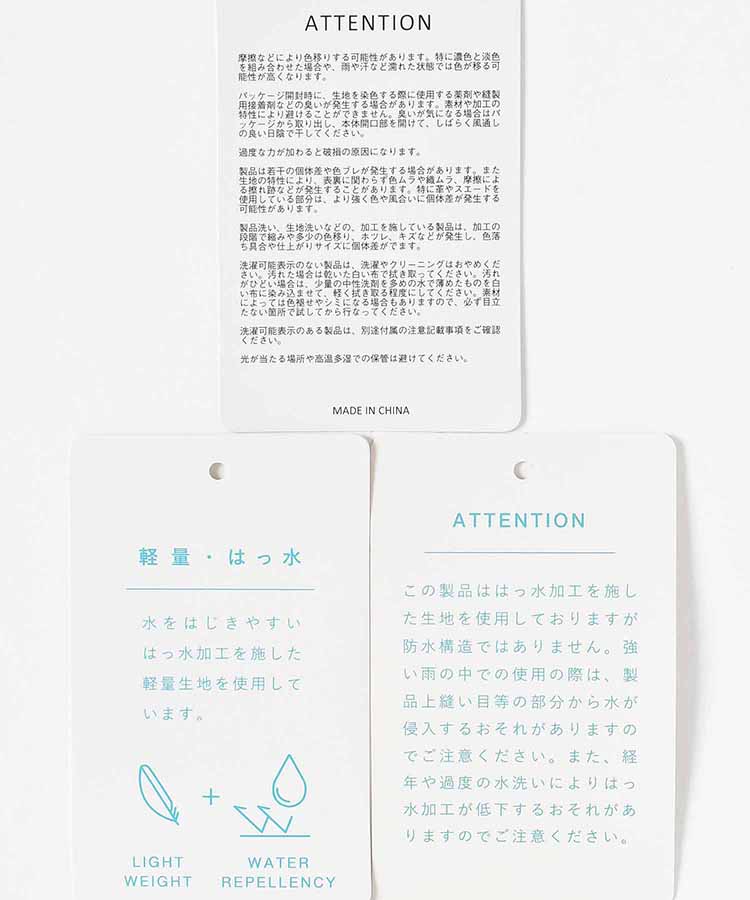 ATTENTION
摩擦などにより色移りする可能性があります。特に濃色と淡色
を組み合わせた場合や、雨や汗など濡れた状態では色が移る可
能性が高くなります。
パッケージ開封時に、生地を染色する際に使用する薬剤や縫製
用接着剤などの臭いが発生する場合があります。素材や加工の
特性により避けることができません。臭いが気になる場合はパ
ッケージから取り出し、本体開口部を開けて、しばらく風通し
の良い日陰で干してください。
過度な力が加わると破損の原因になります。
製品は若干の個体差や色ブレが発生する場合があります。また
生地の特性により、表裏に関わらず色ムラや織ムラ、摩擦によ
る擦れ跡などが発生することがあります。特に革やスエードを
使用している部分は、より強く色や風合いに個体差が発生する
可能性があります。
製品洗い、生地洗いなどの、加工を施している製品は、加工の
段階で縮みや多少の色移り、ホツレ、キズなどが発生し、色落
ち具合や仕上がりサイズに個体差がでます。
洗濯可能表示のない製品は、洗濯やクリーニングはおやめくだ
さい。汚れた場合は乾いた白い布で拭き取ってください。汚れ
がひどい場合は、少量の中性洗剤を多めの水で薄めたものを白
い布に染み込ませて、軽く拭き取る程度にしてください。素材
によっては色褪せやシミになる場合もありますので、必ず目立
たない箇所で試してから行なってください。
洗濯可能表示のある製品は、別途付属の注意記載事項をご確認
ください。
光が当たる場所や高温多湿での保管は避けてください。
MADE IN CHINA
軽量・はっ水
水をはじきやすい
はっ水加工を施した
軽量生地を使用して
います。
+
LIGHT
WEIGHT
WATER
REPELLENCY
ATTENTION
この製品ははっ水加工を施し
た生地を使用しておりますが
防水構造ではありません。強
い雨の中での使用の際は、製
品上縫い目等の部分から水が
侵入するおそれがありますの
でご注意ください。また、経
年や過度の水洗いによりはっ
水加工が低下するおそれがあ
りますのでご注意ください。